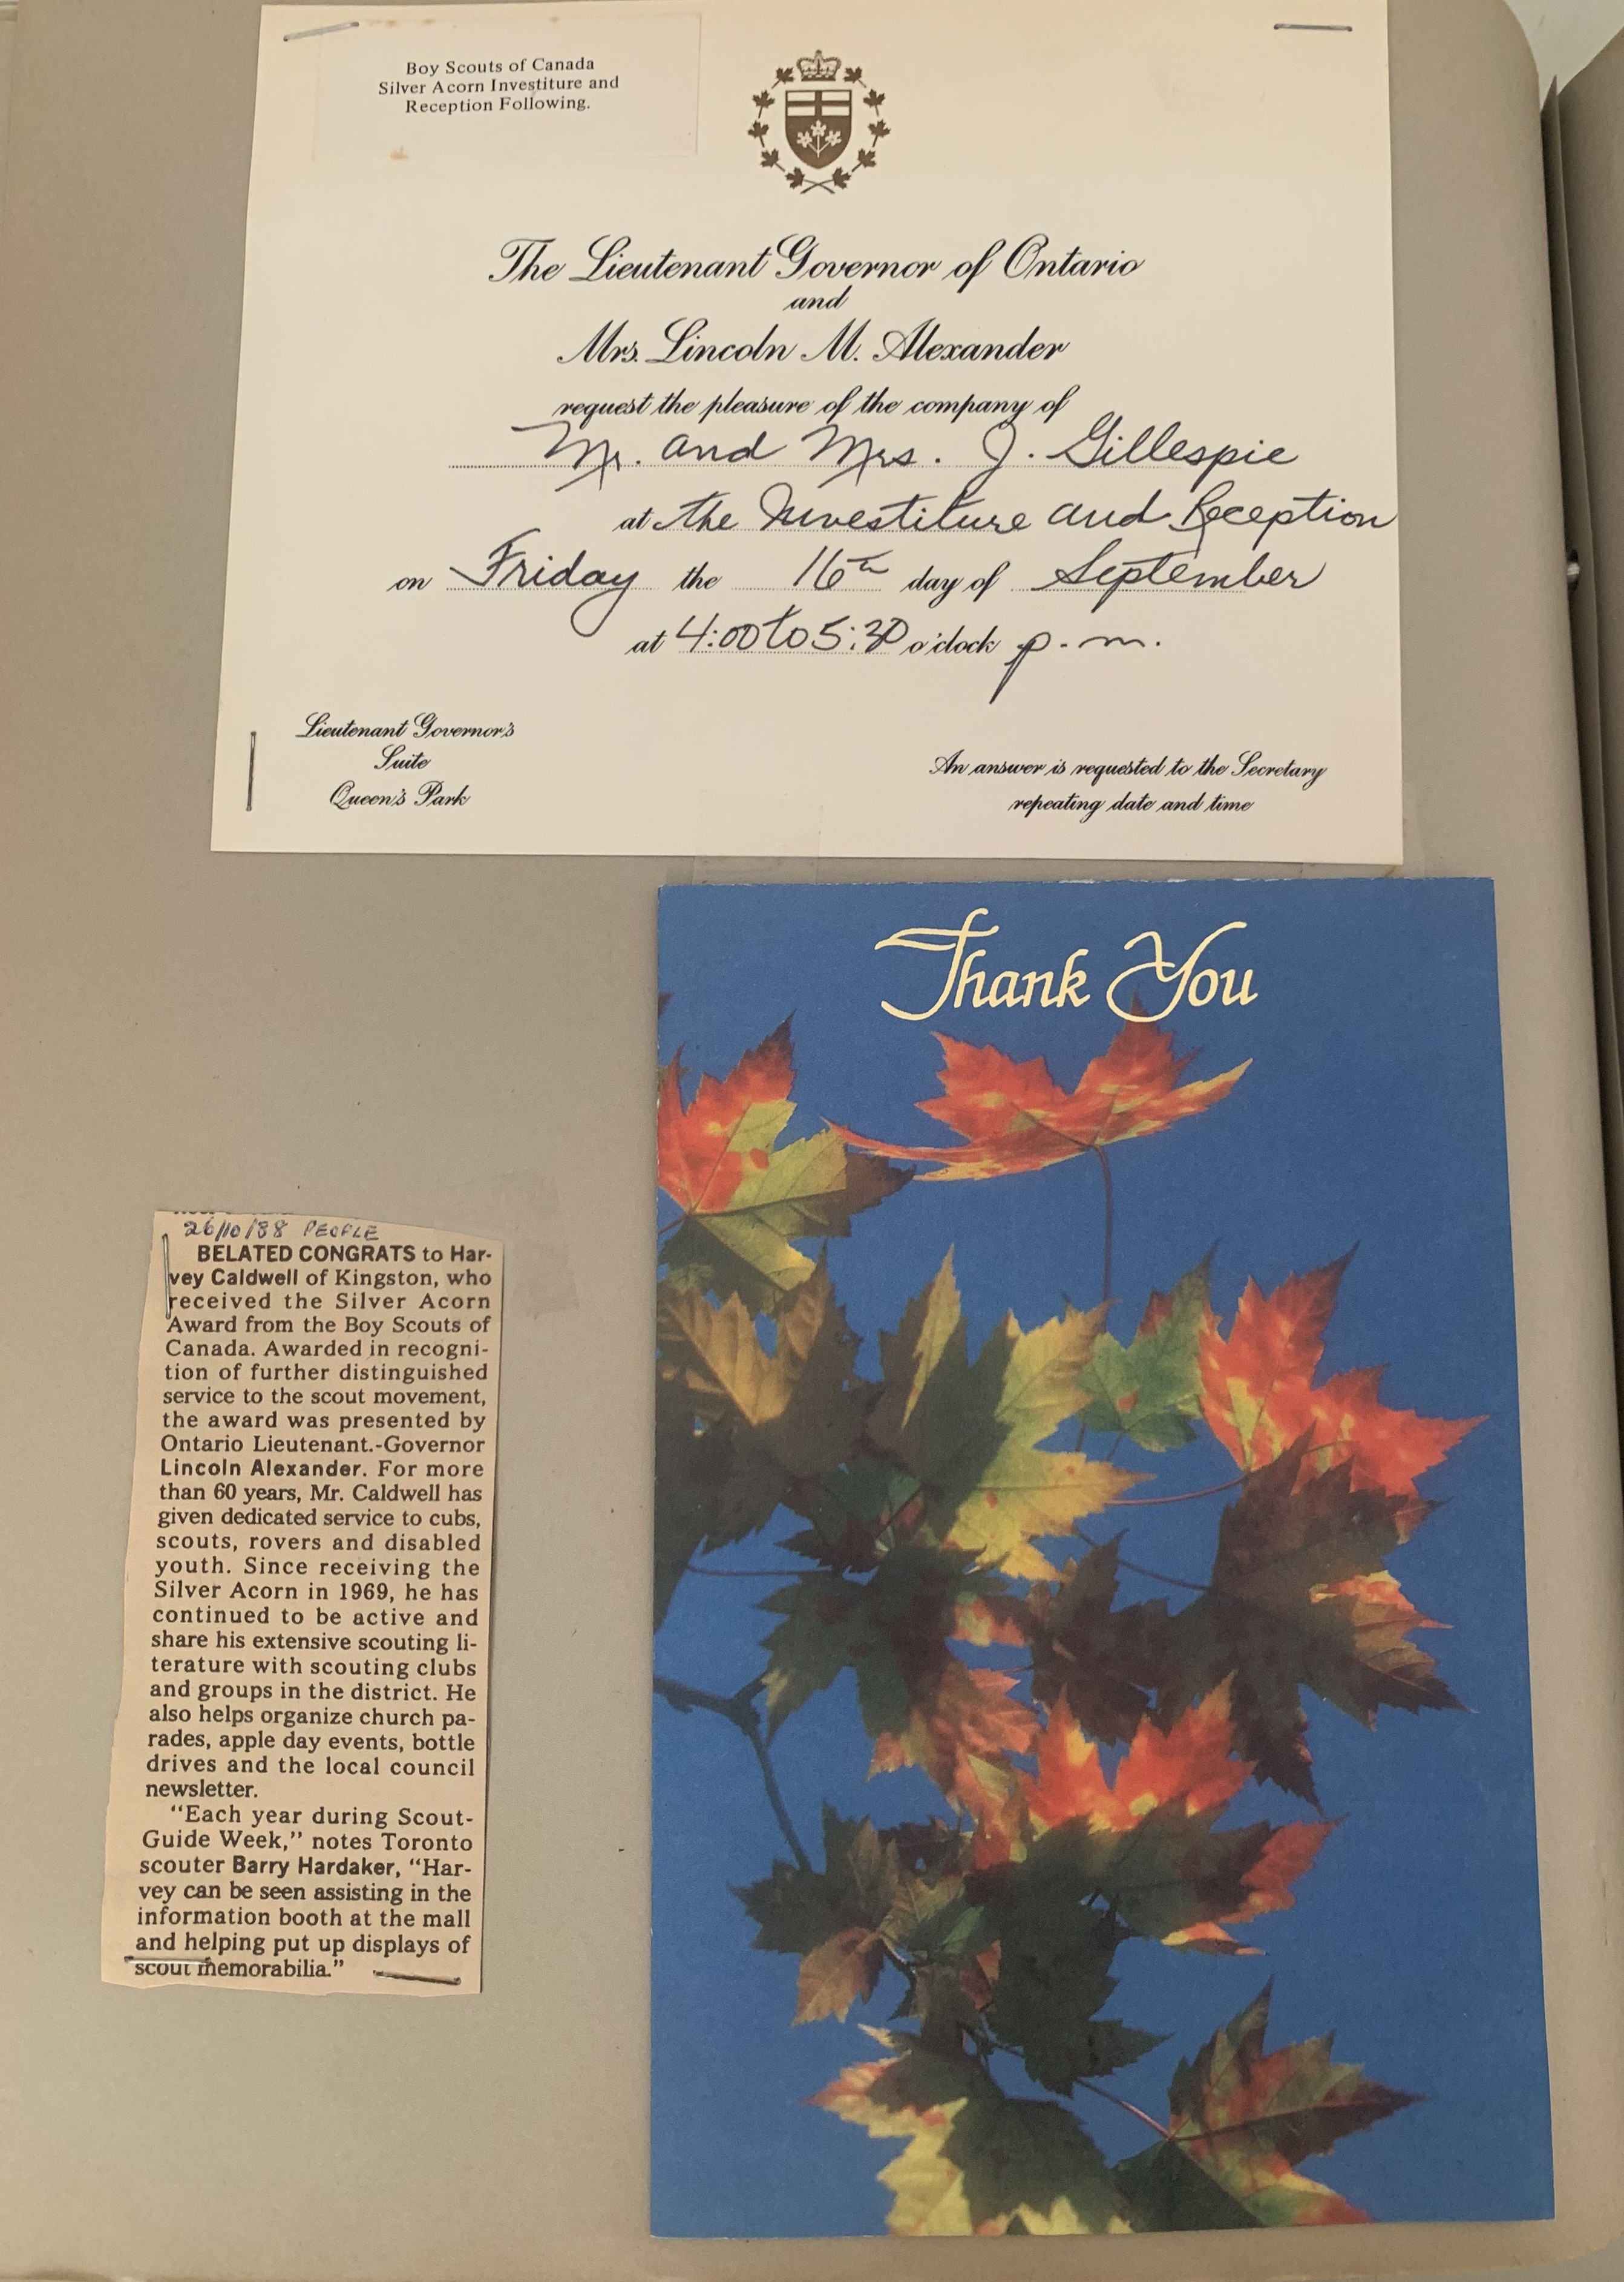 Boy Scouts of Canada
Silver Acorn Investiture and
Reception Following.
The Lieutenant Governor of Ontario
and
Mrs. Lincoln M. Alexander
request the pleasure of the company of
Mr. and Mrs. J. Gillespie
at the Investiture and Reception
on Friday the 16th day of September
at 4:00 to 5:30 o'clock p.m.
Lieutenant Governor's
Suite
Queen's Park
An answer is requested to the Secretary
repeating date and time
Thank You
26/10/88 PEOPLE
BELATED CONGRATS to Har-
vey Caldwell of Kingston, who
received the Silver Acorn
Award from the Boy Scouts of
Canada. Awarded in recogni-
tion of further distinguished
service to the scout movement,
the award was presented by
Ontario Lieutenant.-Governor
Lincoln Alexander. For more
than 60 years, Mr. Caldwell has
given dedicated service to cubs,
scouts, rovers and disabled
youth. Since receiving the
Silver Acorn in 1969, he has
continued to be active and
share his extensive scouting li-
terature with scouting clubs
and groups in the district. He
also helps organize church pa-
rades, apple day events, bottle
drives and the local council
newsletter.
"Each year during Scout-
Guide Week," notes Toronto
scouter Barry Hardaker, "Har-
vey can be seen assisting in the
information booth at the mall
and helping put up displays of
scout memorabilia."